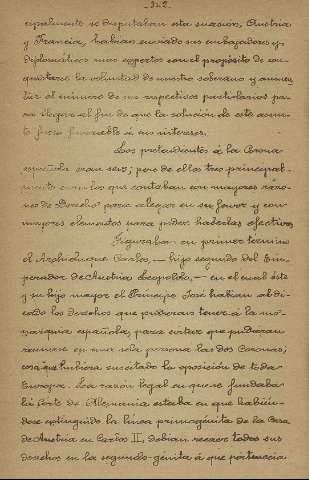 -322-
cipalmente se disputaban esta sucesion, Austria
y Francia, habian enviado sus embajadores y
diplomáticos mas expertos con el propósito de con-
quistarse la voluntad de nuestro soberano y aumen-
tar el número de sus respectivos partidarios pa-
ra llegar al fin de que la solución de este asun-
to fuese favorable á sus intereses.
Los pretendientes á la Corona
española eran seis; pero de ellos tres principal-
mente eran los que contaban con mayores razo-
nes de Derecho para alegar en su favor y con
mayores elementos para poder hacerlas efectivas
Figuraban en primer termino
el Archiduque Carlos,— hijo segundo del Em-
perador de Austria Leopoldo,— en el cual éste
y su hijo mayor el Principe José habian abdi-
cado los derechos que pudieran tener á la mo-
narquia española, para evitar que pudieran
reunirse en una sola persona las dos Coronas,
cosa que hubiera suscitado la oposición de toda
Europa. La razón legal en que se fundaba
la Corte de Alemania estaba en que habién-
dose extinguido la línea primogénita de la Casa
de Austria en Carlos II, debian recaer todos sus
derechos en la segundo-génita á que pertenecia